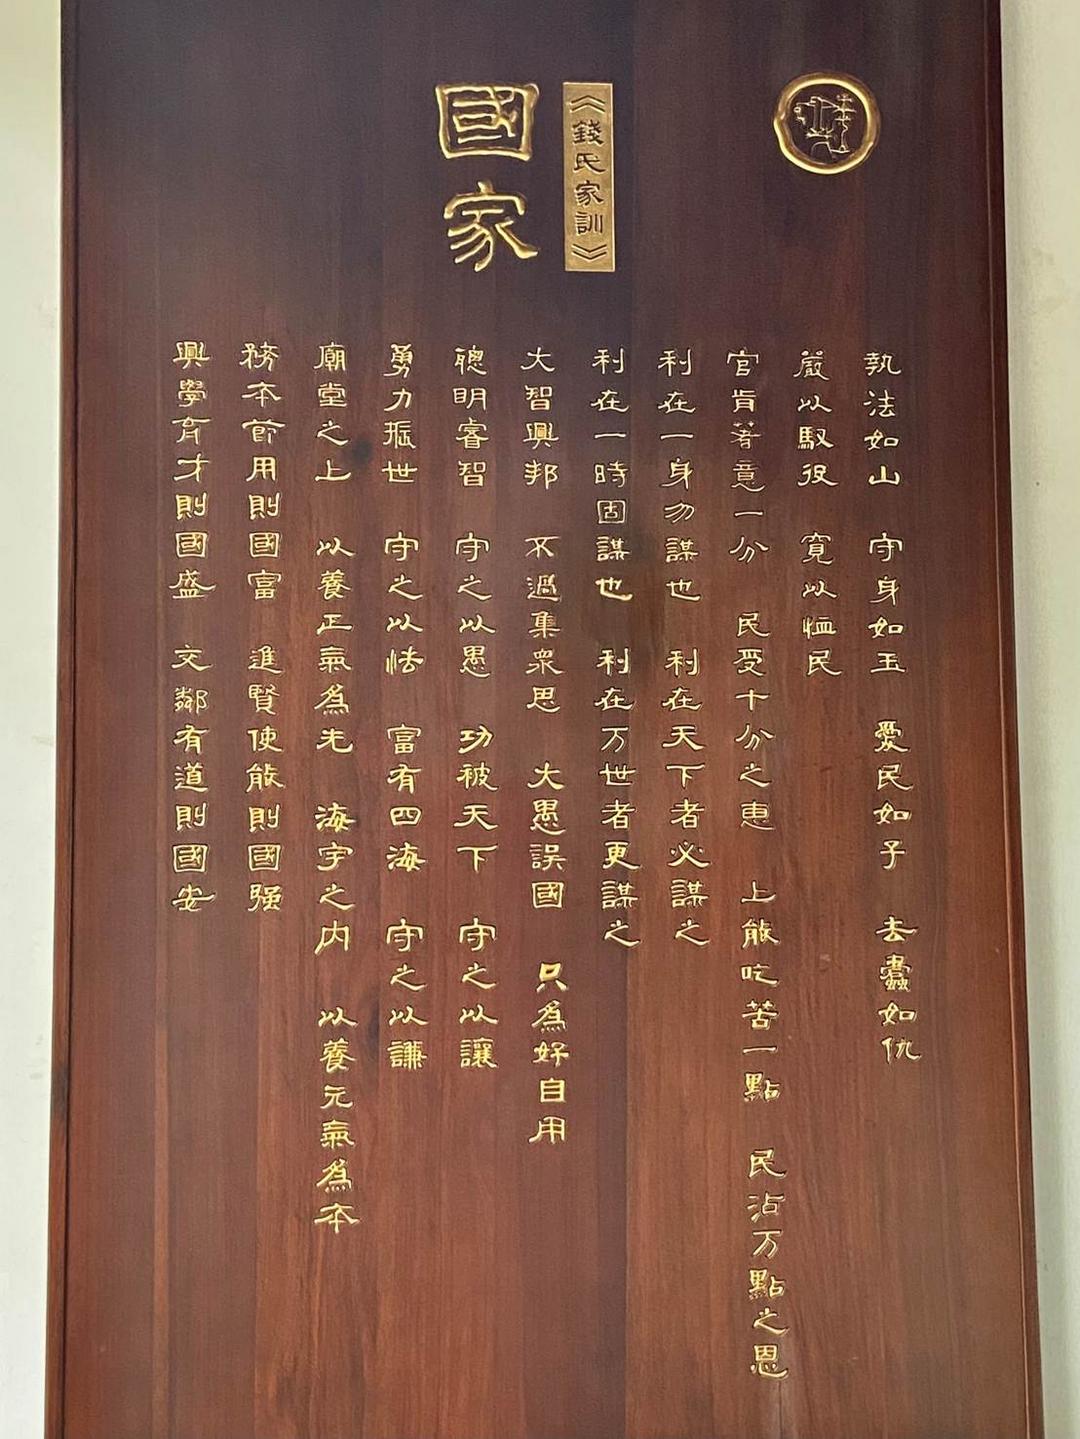 《錢氏家訓》
國家
執法如山 守身如玉 愛民如子 去蠹如仇
嚴以馭役 寬以恤民
官肯著意一分 民受十分之惠 上能吃苦一點 民沾万點之恩
利在一身勿謀也 利在天下者必謀之
利在一時固謀也 利在万世者更謀之
大智興邦 不過集衆思 大愚誤國 只爲好自用
聰明睿智 守之以愚 功被天下 守之以讓
勇力振世 守之以怯 富有四海 守之以謙
廟堂之上 以養正氣爲先 海宇之内 以養元氣爲本
務本節用則國富 進賢使能則國强
興學育才則國盛 交鄰有道則國安